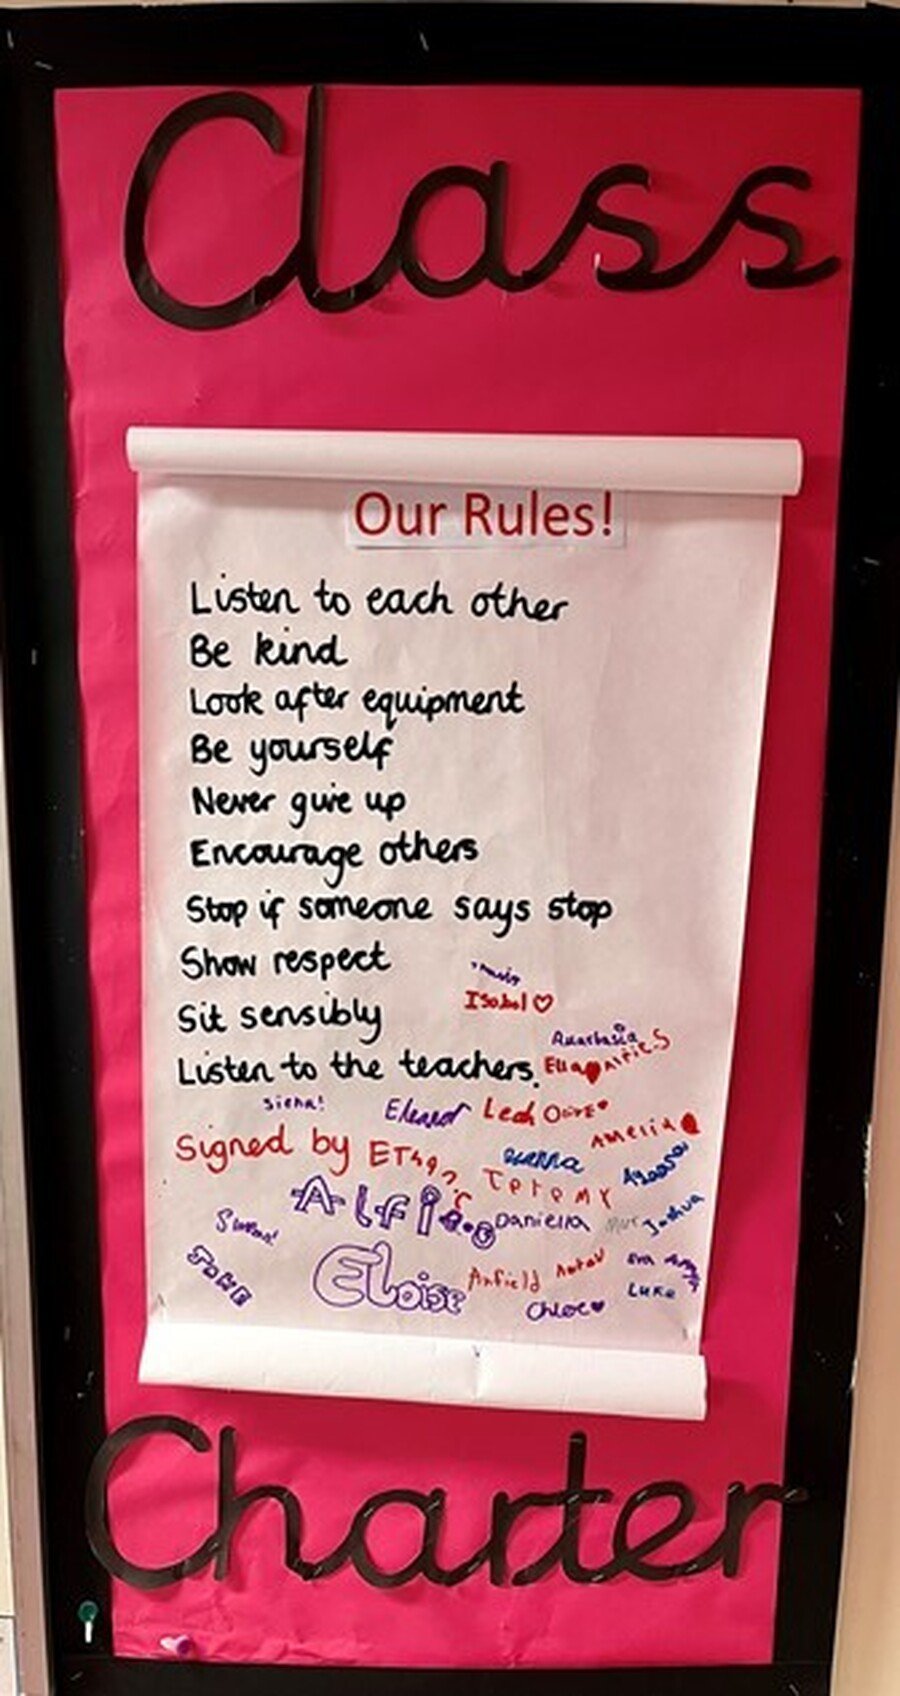 Class
Our Rules!
Listen to each other
Be kind
Look after equipment
Be yourself
Never give up
Encourage others
Stop if someone says stop
Show respect
Isobel
Sit sensibly
Anastasia
Listen to the teachers.
Ella
Siena!
Eleanor Leah
Amelia
Signed by Ethan
Jeremy
Alfie
Daniella
Joshua
Eloise
Anfield
Eva
Luke
Chloe
Charter